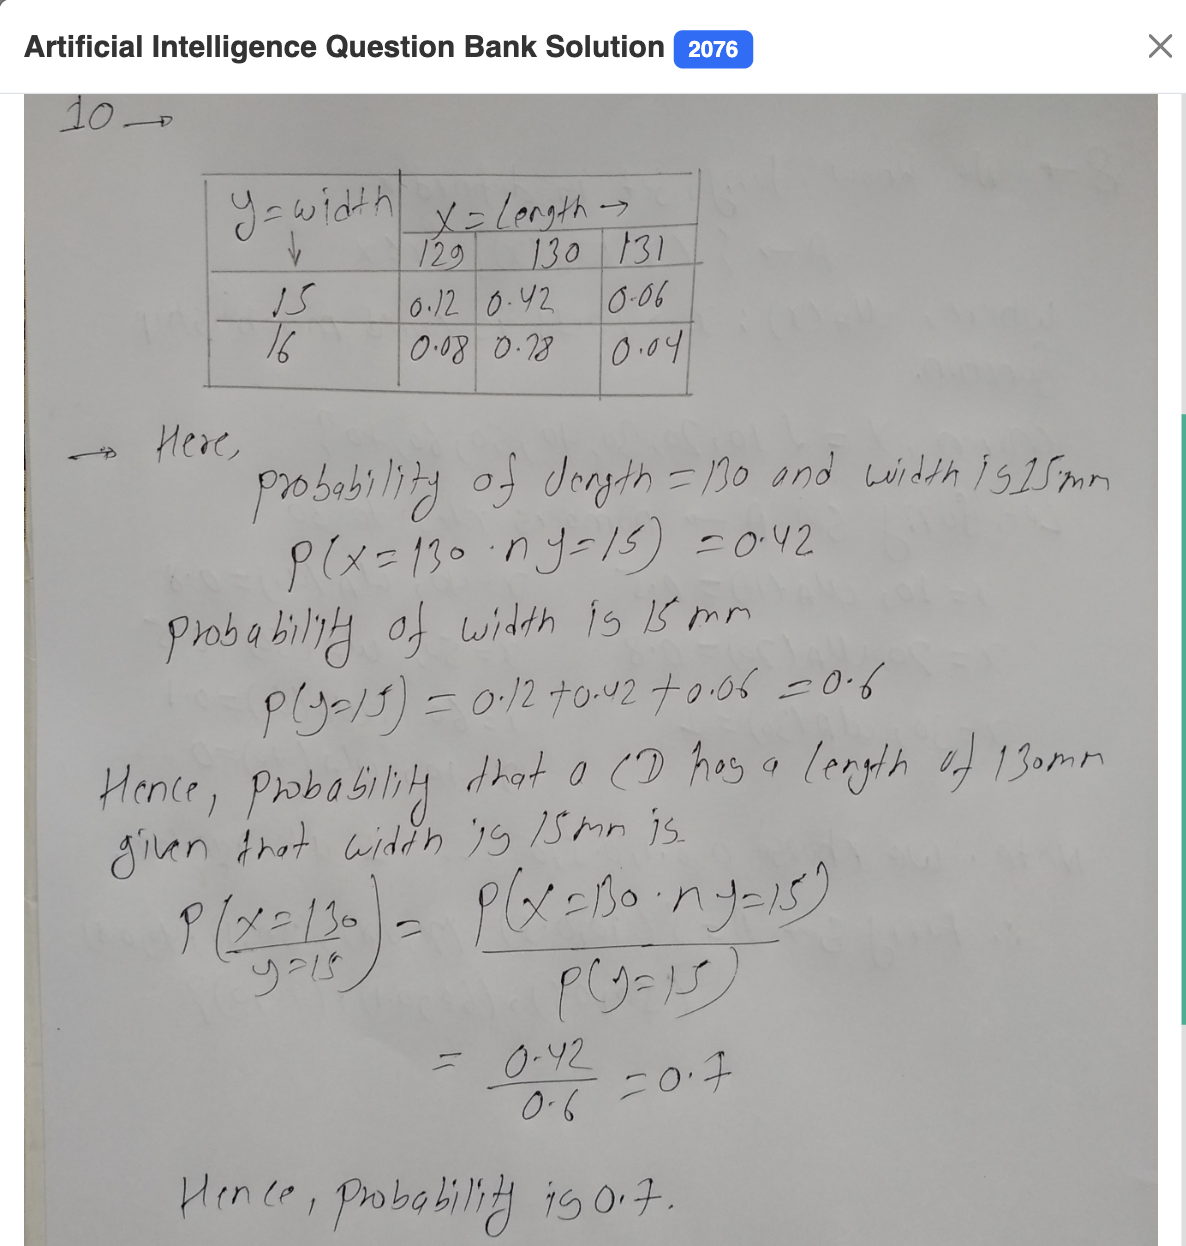 Artificial Intelligence Question Bank Solution 2076
10 →
y = width x = Length →
↓ 129 130 131
15 0.12 0.42 0.06
16 0.08 0.28 0.04
→ Here,
probability of length = 130 and width is 15mm
P(x = 130 ∩ y = 15) = 0.42
probability of width is 15 mm
P(y=15) = 0.12 + 0.42 + 0.06 = 0.6
Hence, probability that a CD has a length of 130mm
given that width is 15mm is
P(x = 130 / y = 15) = P(x = 130 ∩ y = 15) / P(y = 15)
= 0.42 / 0.6 = 0.7
Hence, probability is 0.7.